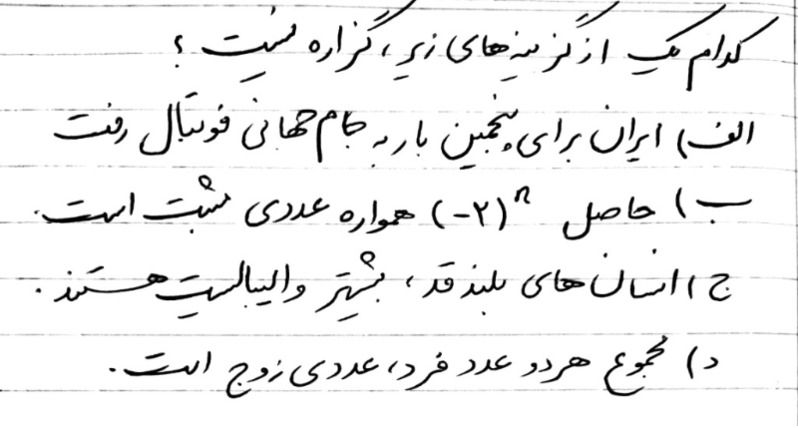 کدام یک از گزینه‌های زیر، گزاره نیست ؟
الف) ایران برای پنجمین بار به جام جهانی فوتبال رفت
ب) حاصل (-۲)^n همواره عددی مثبت است.
ج) انسان‌های بلند قد، بیشتر والیبالیست هستند.
د) مجموع هر دو عدد فرد، عددی زوج است.